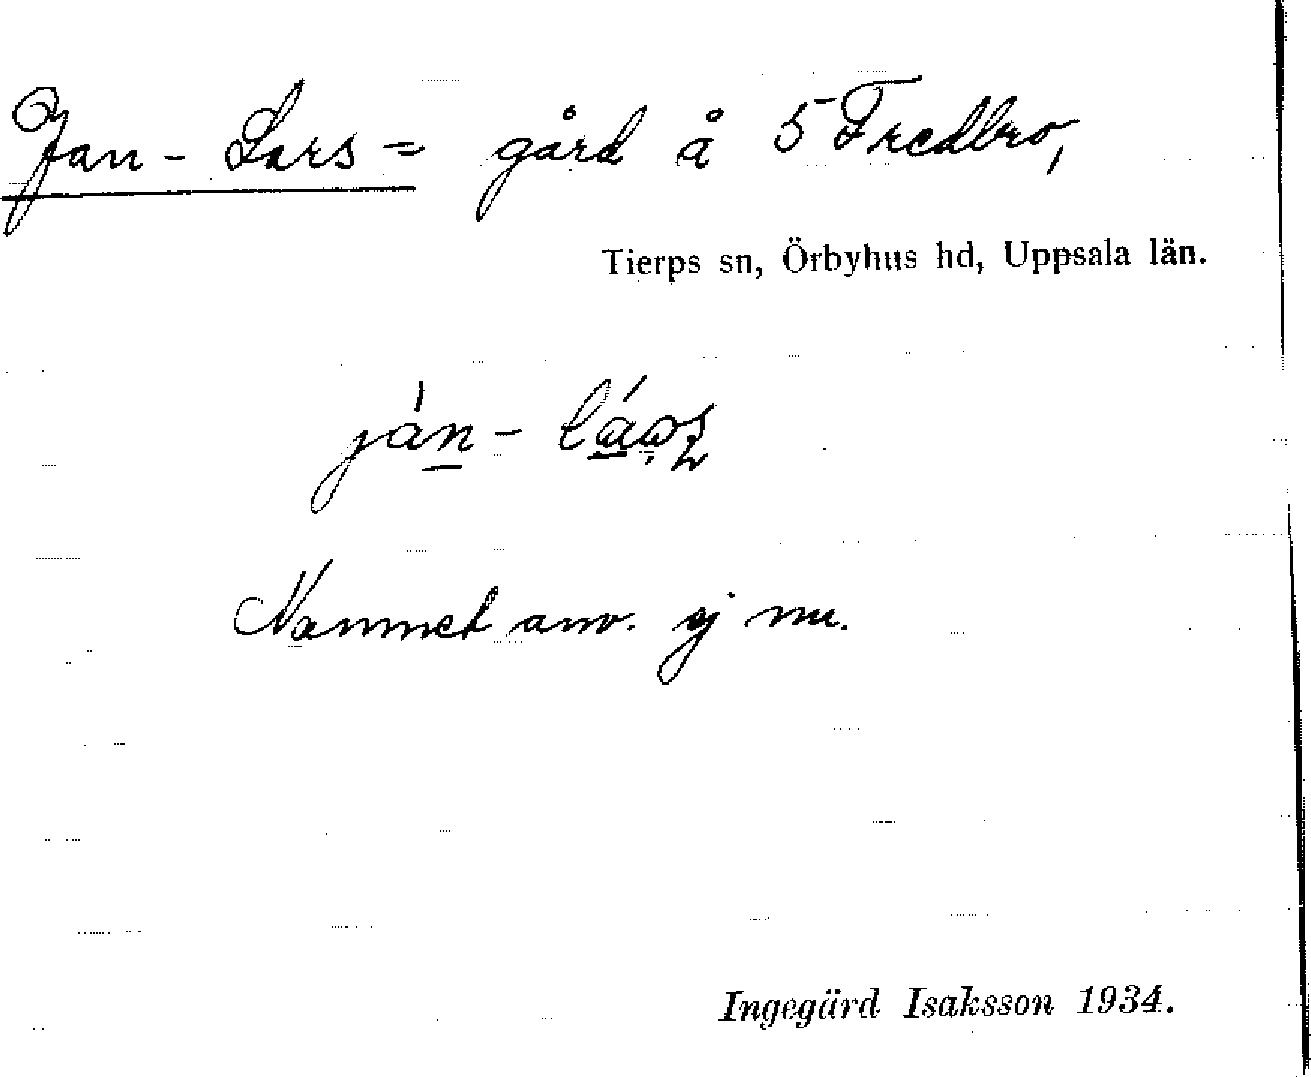 Jan-Lars= gård å 5 Fredbro,
Tierps sn, Örbyhus hd, Uppsala län.
ján-
Namnet anv. ej nu.
Ingegärd Isaksson 1934.